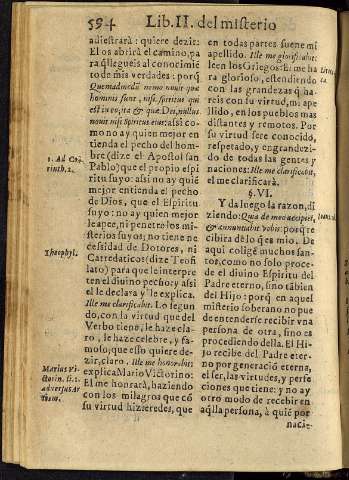 594 Lib. II. del misterio
adiestrarà: quiere dezir:
El os abrirà el camino, pa
ra q̃llegueis al conocimiẽ
to de mis verdades: porq̃
Quemadmodũ nemo nouit quæ
hominis sunt, nisi spiritus qui
est in eo, ita & quæ Dei, nullus
nouit nisi Spiritus eius: assi co
mo no ay quien mejor en
tienda el pecho del hom-
bre (dize el Apostol san
Pablo) que el propio espi
ritu suyo: assi no ay quié
mejor entienda el pecho
de Dios, que el Espiritu
suyo: no ay quien mejor
le apee, ni penetre los mi
sterios suyos; no tiene ne
cessidad de Dotores, ni
Catredaticos (dize Teofi
lato) para que le interprete
ten el diuino pecho: y assi
el le declara y le explica.
Ille me clarificabit. Lo segun
do, con la virtud que del
Verbo tiene, le haze cla-
ro, le haze celebre, y fa-
moso, que esso quiere de-
zir, claro, Ille me honorabit:
explica Mario Victorino:
El me honrarà, haziendo
con los milagros que cõ
su virtud hizieredes, que
1. Ad Corinth. 2.
Theophyl.
Marius Victorin. li. 1.
aduersus Ar
en todas partes suene mi
apellido. Ille me glorificabit:
leen los Griegos: El me ha
ra glorioso, estendiendo
con las grandezas q̃ ha-
reis con su virtud, mi ape
llido, en los pueblos mas
distantes y remotos. Por
su virtud sere conocido,
respetado, y engrandezi-
do de todas las gentes y
naciones: Ille me clarificabit,
el me clarificarà.
§. VI.
Y da luego la razon, di
ziendo: Quia de meo accipiet,
& annuntiabit vobis: porq̃ re
cibira de lo q̃ es mio. De
aqui coligẽ muchos san-
tos, como no solo proce-
de el diuino Espiritu del
Padre eterno, sino tãbien
del Hijo: porq̃ en aquel
misterio soberano no pue
de entenderse recibir vna
persona de otra, sino es
procediendo della. El Hi-
jo recibe del Padre eter-
no por generació eterna,
el ser, las virtudes, y perfe
ciones que tiene: y no ay
otro modo de recebir en
aq̃lla persona, à quié por
nacie-